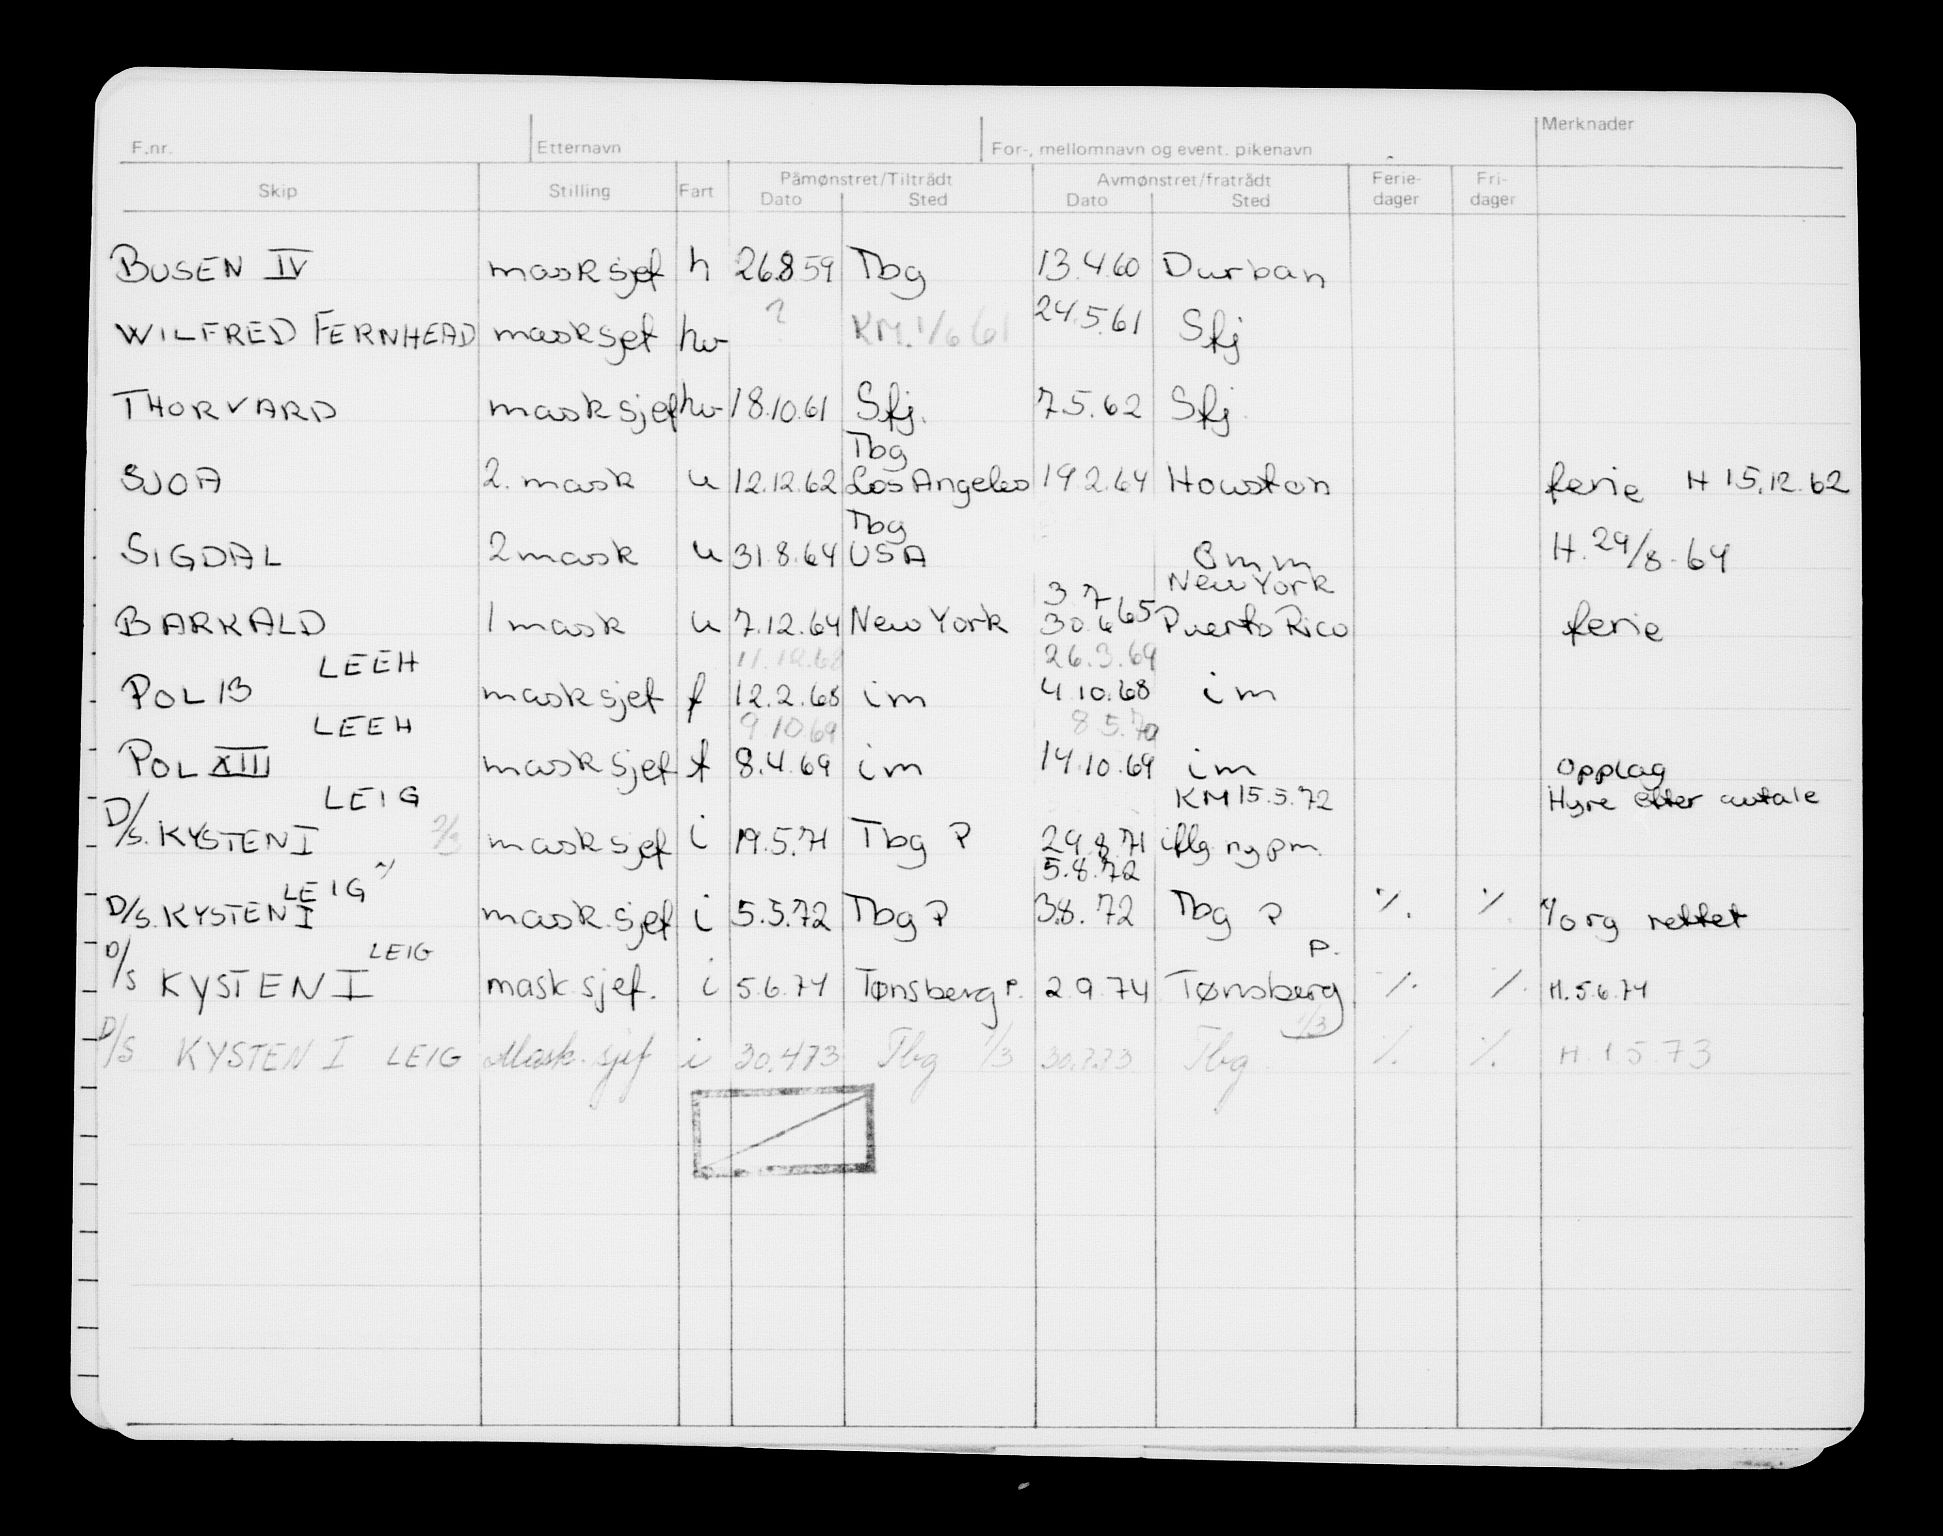 F.nr. Etternavn For-, mellomnavn og event. pikenavn Merknader
Skip Stilling Fart Påmønstret/Tiltrådt Avmønstret/fratrådt Ferie- Fri-
Dato Sted Dato Sted dager dager
BUSEN IV mask sjef h 26.8 59 Tbg 13.4.60 Durban
WILFRED FERNHEAD mask sjef hv ? KM. 1/6 61 24.5.61 Sfj
THORVARD mask sjef hv 18.10.61 Sfj. 7.5.62 Sfj
Tbg
SJOA 2. mask u 12.12.62 Los Angeles 19 2.64 Houston ferie H 15.12.62
Tbg
SIGDAL 2 mask u 31.8.64 USA Omm H. 29/8-64
3 7 New York
BARKALD 1 mask u 7.12.64 New York 30.6 65 Puerto Rico ferie
LEEH 11.12.68 26.3.69
POL 13 mask sjef f 12.2.68 im 4.10.68 im
LEEH 9.10.69 8 5.70
POL XIII mask sjef f 8.4.69 im 14.10.69 im opplag
LEIG KM 15.5.72 Hyre etter avtale
D/s. KYSTEN I mask sjef i 19.5.71 Tbg P 29.8.71 iflg ny pm.
5.8.72
LEIG
D/s. KYSTEN I mask. sjef i 5.5.72 Tbg P 3.8.72 Tbg P ./. ./. org rettet
LEIG P.
D/s KYSTEN I mask. sjef. i 5.6.74 Tønsberg P. 2.9.74 Tønsberg ./. ./. H. 5.6.74
1/3
D/s KYSTEN I LEIG Mask. sjef i 30.4 73 Tbg 1/3 30.7.73 Tbg ./. ./. H. 1.5.73